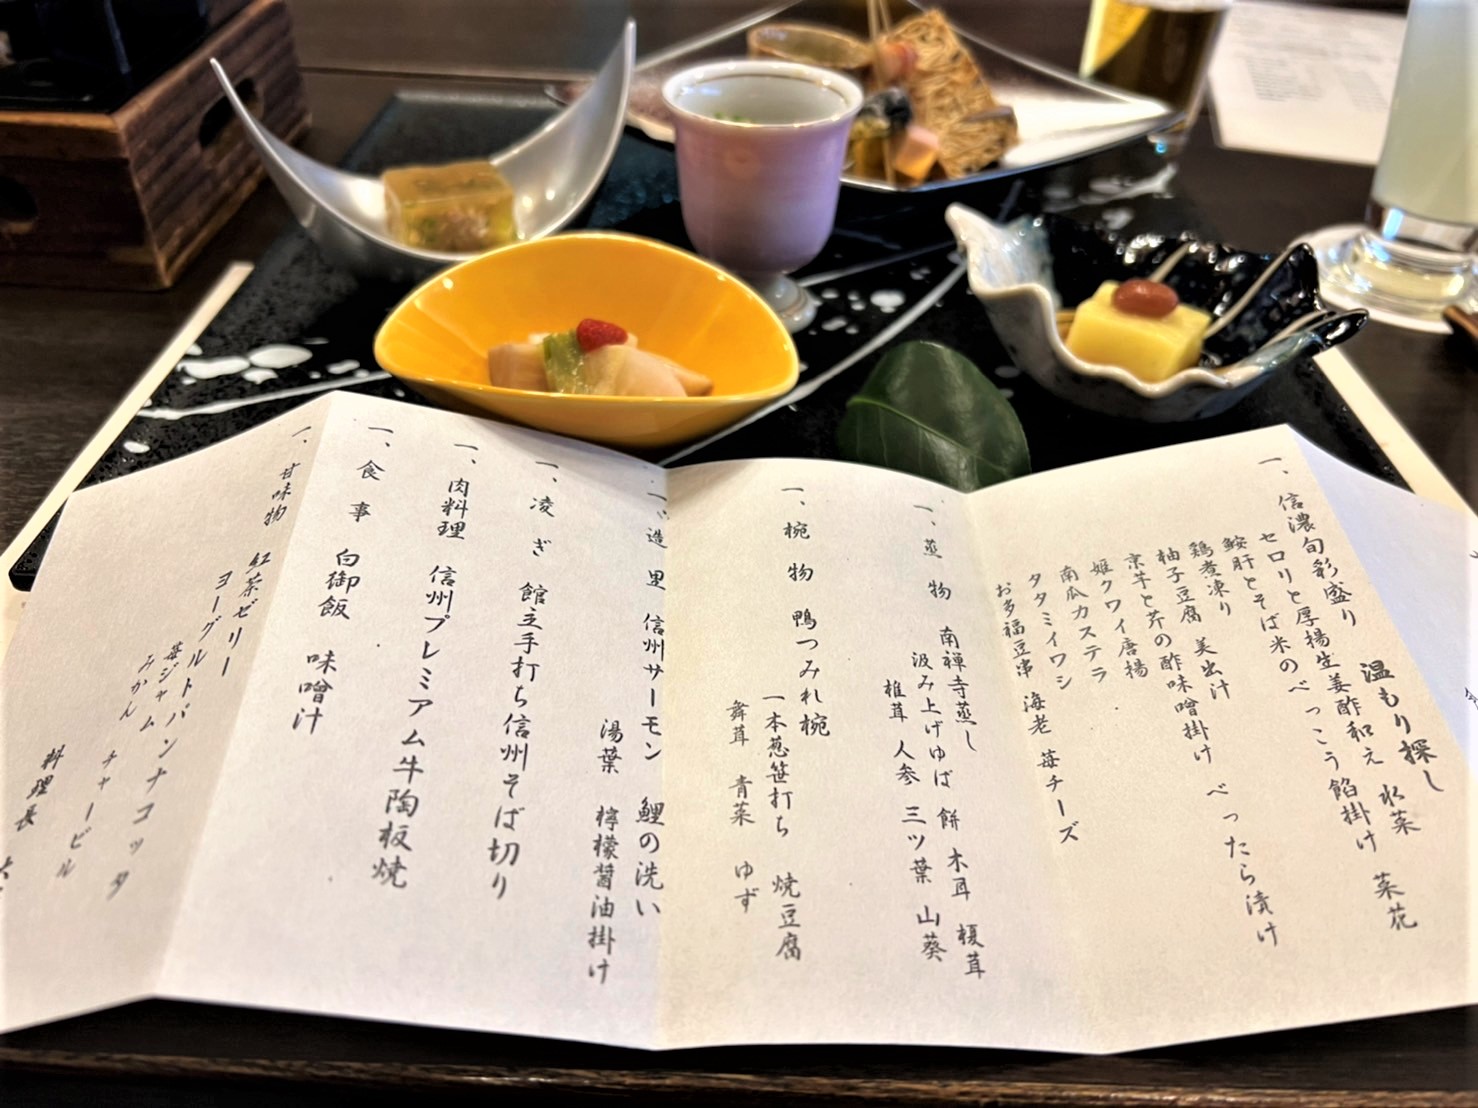 温もり探し
一、信濃旬彩盛り 水菜 菜花
セロリと厚揚生姜酢和え
鮟肝とそば米のべっこう餡掛け
鶏煮凍り べったら漬け
柚子豆腐 美出汁
京芋と芹の酢味噌掛け
姫クワイ唐揚
南瓜カステラ
タタミイワシ
お多福豆串 海老 苺チーズ
一、蒸物 南禅寺蒸し
汲み上げゆば 餅 木耳 榎茸
椎茸 人参 三ツ葉 山葵
一、椀物 鴨つみれ椀
一本葱笹打ち 焼豆腐
舞茸 青菜 ゆず
一、造里 信州サーモン 鯉の洗い
湯葉 檸檬醤油掛け
一、凌ぎ 館主手打ち信州そば切り
一、肉料理 信州プレミアム牛陶板焼
一、食事 白御飯 味噌汁
一、甘味物 紅茶ゼリー
ヨーグルトパンナコッタ
苺ジャム チャービル
みかん
料理長